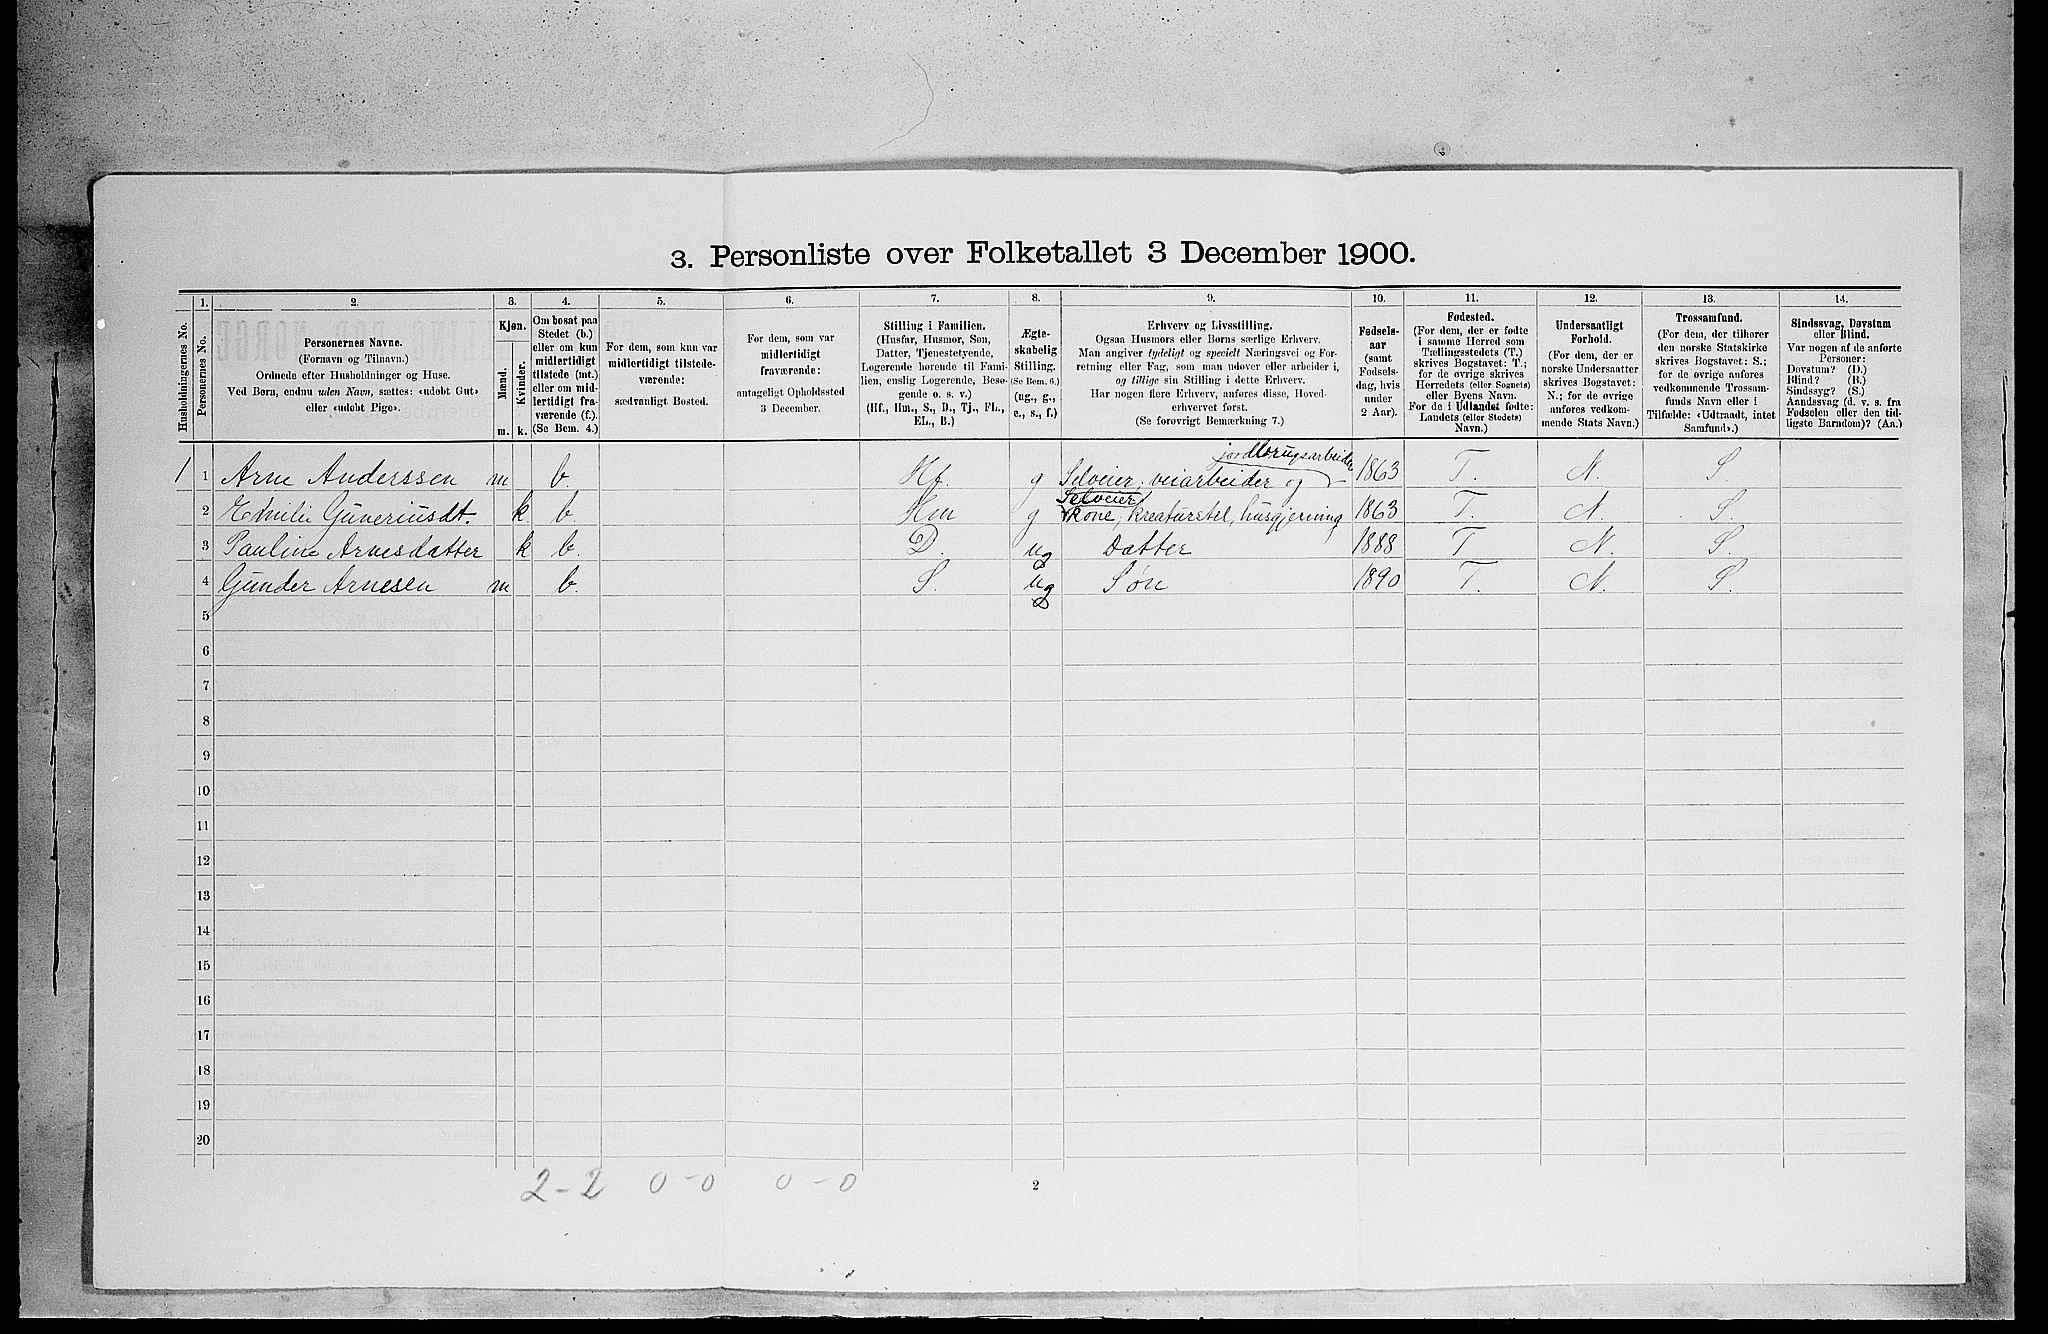 3. Personliste over Folketallet 3 December 1900.
Husholdningernes No.
1.
Personernes No.
2.
Personernes Navne.
(Fornavn og Tilnavn.)
Ordnede efter Husholdninger og Huse.
Ved Børn, endnu uden Navn, sættes: «udøbt Gut»
eller «udøbt Pige».
3.
Kjøn.
Mænd.
Kvinder.
m. k.
4.
Om bosat paa
Stedet (b.)
eller om kun
midlertidigt
tilstede (mt.)
eller om mid-
lertidigt fra-
værende (f.).
(Se Bem. 4.)
5.
For dem, som kun var
midlertidigt tilstede-
værende:
sædvanligt Bosted.
6.
For dem, som var
midlertidigt
fraværende:
antageligt Opholdssted
3 December.
7.
Stilling i Familien.
(Husfar, Husmor, Søn,
Datter, Tjenestetyende,
Logerende hørende til Fami-
lien, enslig Logerende, Besø-
gende o. s. v.)
(Hf., Hm., S., D., Tj., FL.,
EL., B.)
8.
Ægte-
skabelig
Stilling.
(Se Bem. 6.)
(ug., g.,
e., s., f.)
9.
Erhverv og Livsstilling.
Ogsaa Husmors eller Børns særlige Erhverv.
Man angiver tydeligt og specielt Næringsvei og For-
retning eller Fag, som man udøver eller arbeider i,
og tillige sin Stilling i dette Erhverv.
Har nogen flere Erhverv, anføres disse, Hoved-
erhvervet først.
(Se forøvrigt Bemærkning 7.)
10.
Fødsels-
aar
(samt
Fødsels-
dag, hvis
under
2 Aar).
11.
Fødested.
(For dem, der er fødte
i samme Herred som
Tællingsstedets (T.)
skrives Bogstavet: T.;
for de øvrige skrives
Herredets (eller Sognets)
eller Byens Navn.
For de i Udlandet fødte:
Landets (eller Stedets)
Navn.)
12.
Undersaatligt
Forhold.
(For dem, der er
norske Undersaatter
skrives Bogstavet:
N.; for de øvrige
anføres vedkom-
mende Stats Navn.)
13.
Trossamfund.
(For dem, der tilhører
den norske Statskirke
skrives Bogstavet: S.;
for de øvrige anføres
vedkommende Trossam-
funds Navn eller i
Tilfælde: «Udtraadt, intet
Samfund».)
14.
Sindssvag, Døvstum
eller Blind.
Var nogen af de anførte
Personer:
Døvstum? (D.)
Blind? (B.)
Sindssyg? (S.)
Aandssvag (d. v. s. fra
Fødselen eller den tid-
ligste Barndom)? (Aa.)
jordbrugsarbeider
1 1 Arne Anderssen m b. Hf. g Selveier, veiarbeider og 1863 T. N. S.
Selveier
2 Emilie Guneriusdt. k b. Hm g kone, kreaturstel, husgjerning 1863 T. N. S.
3 Pauline Arnesdatter k b. D. ug Datter 1888 T N. S.
4 Gunder Arnesen m b. S. ug Søn 1890 T. N. S.
5
6
7
8
9
10
11
12
13
14
15
16
17
18
19
20
2-2 0-0 0-0
2